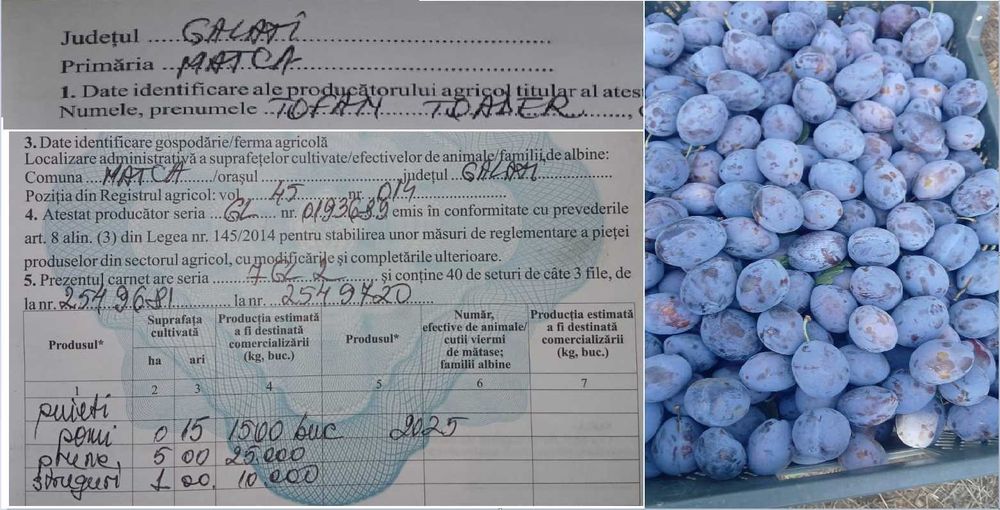 Județul GALAȚI
Primăria MATCA
1. Date identificare ale producătorului agricol titular al atest
Numele, prenumele TOFAN TOADER
3. Date identificare gospodărie/ferma agricolă
Localizare administrativă a suprafețelor cultivate/efectivelor de animale/familii de albine:
Comuna MATCA /orașul județul GALAȚI
Poziția din Registrul agricol: vol. 45 nr. 014
4. Atestat producător seria GL nr. 0193689 emis în conformitate cu prevederile
art. 8 alin. (3) din Legea nr. 145/2014 pentru stabilirea unor măsuri de reglementare a pieței
produselor din sectorul agricol, cu modificările și completările ulterioare.
5. Prezentul carnet are seria 7GL 2 și conține 40 de seturi de câte 3 file, de
la nr. 2549681 la nr. 2549720
Produsul*
Suprafața cultivată
ha ari
Producția estimată a fi destinată comercializării (kg, buc.)
Produsul*
Număr, efective de animale/ cutii viermi de mătase; familii albine
Producția estimată a fi destinată comercializării (kg, buc.)
1 2 3 4 5 6 7
puieți
pomi 0 15 1500 buc 2025
prune, 5 00 25.000
struguri 1 00. 10.000